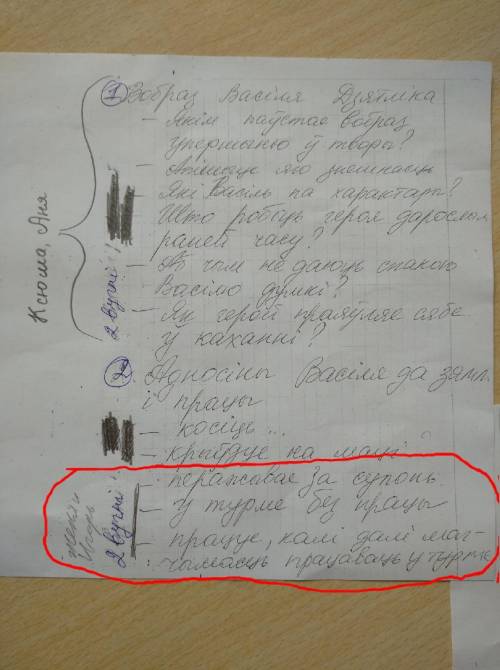 ① Вобраз Васіля Дзятліка
– Якім паўстае вобраз
упершыню ў творы?
– Апішыце яго знешнасць
– Які Васіль па характары?
Што робіць героя дарослым
раней часу?
– Аб чым не даюць спакою
Васілю думкі?
– Як герой праяўляе сябе
ў каханні?
Ксюша, Аня
2 вучні!
② Адносіны Васіля да зямлі
і працы
– косіць...
– крыўдуе на маці
– перажывае за супонь
– у турме без працы
– працуе, калі далі маг-
чымасць працаваць у турме
Ігар
2 вучні!